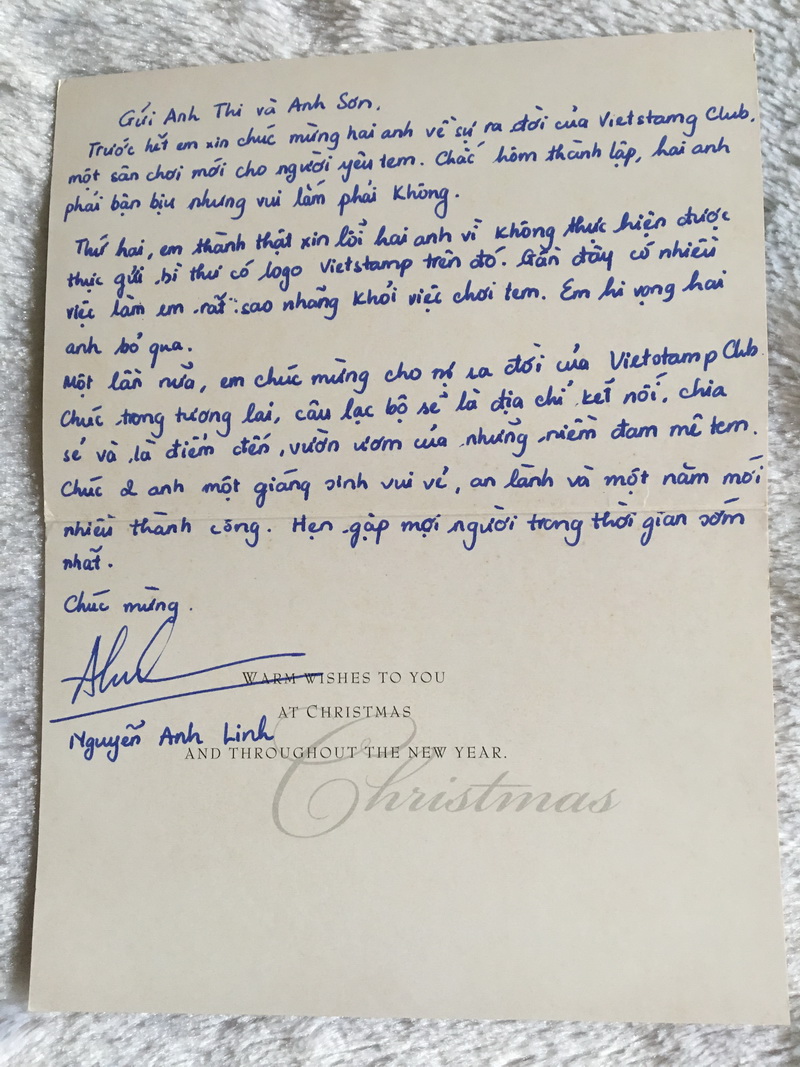 Gửi Anh Thi và Anh Sơn.
Trước hết em xin chúc mừng hai anh về sự ra đời của Vietstamp Club,
một sân chơi mới cho người yêu tem. Chắc hôm thành lập, hai anh
phải bận bịu nhưng vui lắm phải không.
Thứ hai, em thành thật xin lỗi hai anh vì không thực hiện được
thực gửi bì thư có logo Vietstamp trên đó. Gần đây có nhiều
việc làm em rất sao nhãng khỏi việc chơi tem. Em hi vọng hai
anh bỏ qua.
Một lần nữa, em chúc mừng cho sự ra đời của Vietstamp Club
Chúc trong tương lai, câu lạc bộ sẽ là địa chỉ kết nối, chia
sẻ và là điểm đến, vườn ươm của những niềm đam mê tem.
Chúc 2 anh một giáng sinh vui vẻ, an lành và một năm mới
nhiều thành công. Hẹn gặp mọi người trong thời gian sớm
nhất.
Chúc mừng.
Nguyễn Anh Linh
WARM WISHES TO YOU
AT CHRISTMAS
AND THROUGHOUT THE NEW YEAR.
Christmas